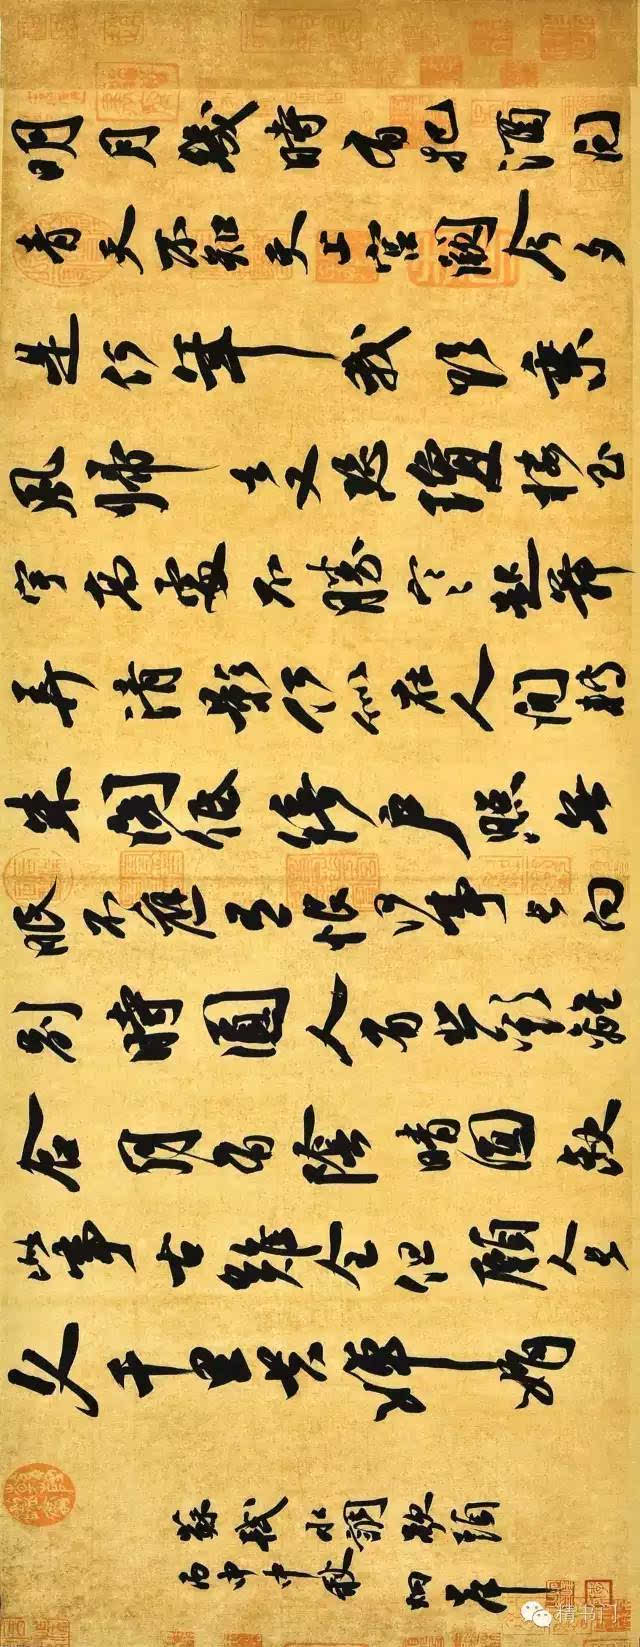 明月幾時有把酒问
青天不知天上宫阙今夕
是何年我欲乘
風歸去又恐瓊楼玉
宇高處不勝寒起舞
弄清影何似在人间轉
朱阁低绮户照无
眠不應有恨何事长向
别時圓人有悲歡離
合月有陰晴圓缺
此事古難全但願人长
久千里共嬋娟
蘇軾水調歌頭
丙申中秋
精书门